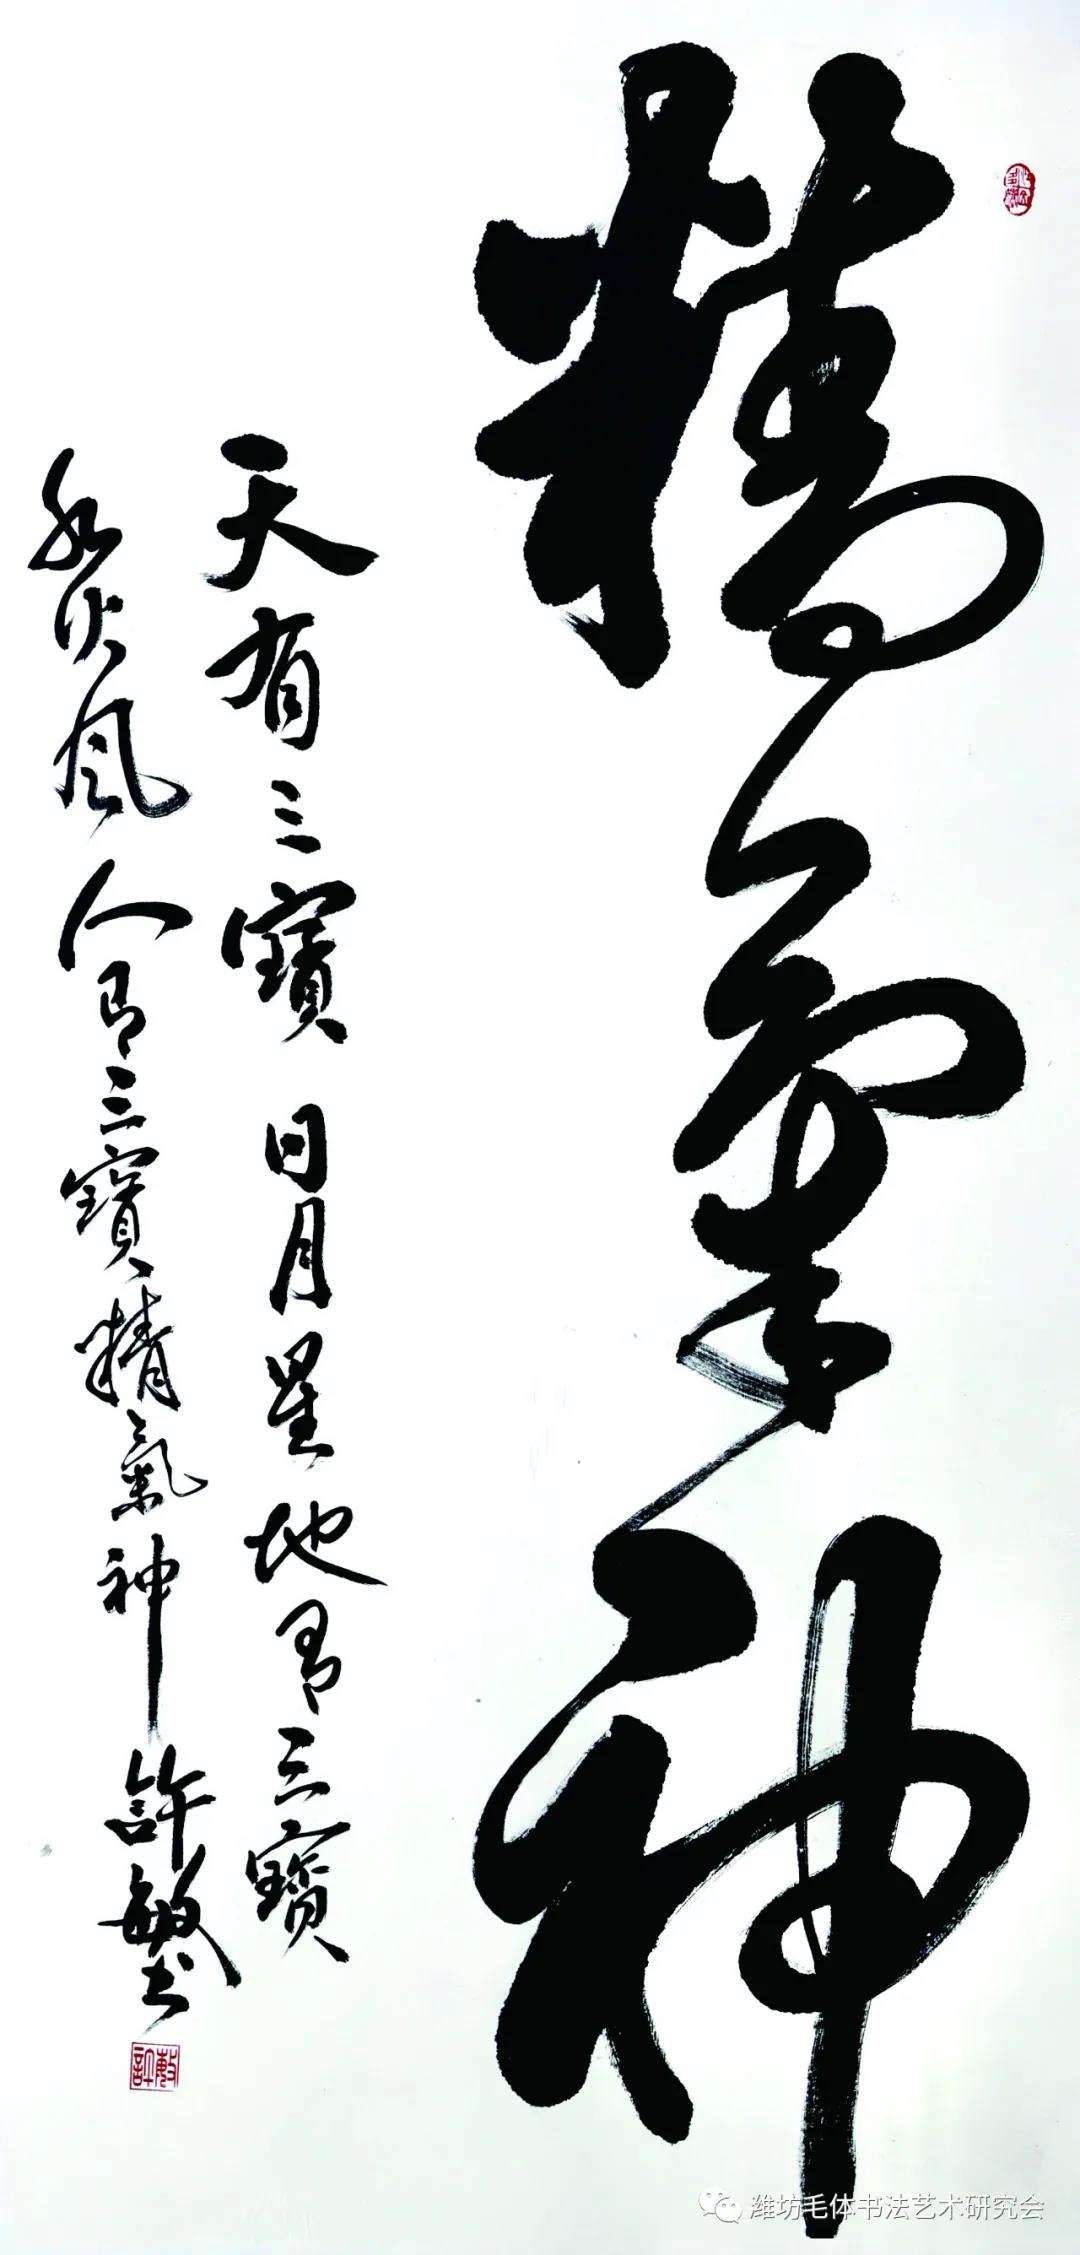 精氣神
天有三寶日月星地有三寶
水火風人有三寶精氣神許敏书
許敏
潍坊毛体书法艺术研究会